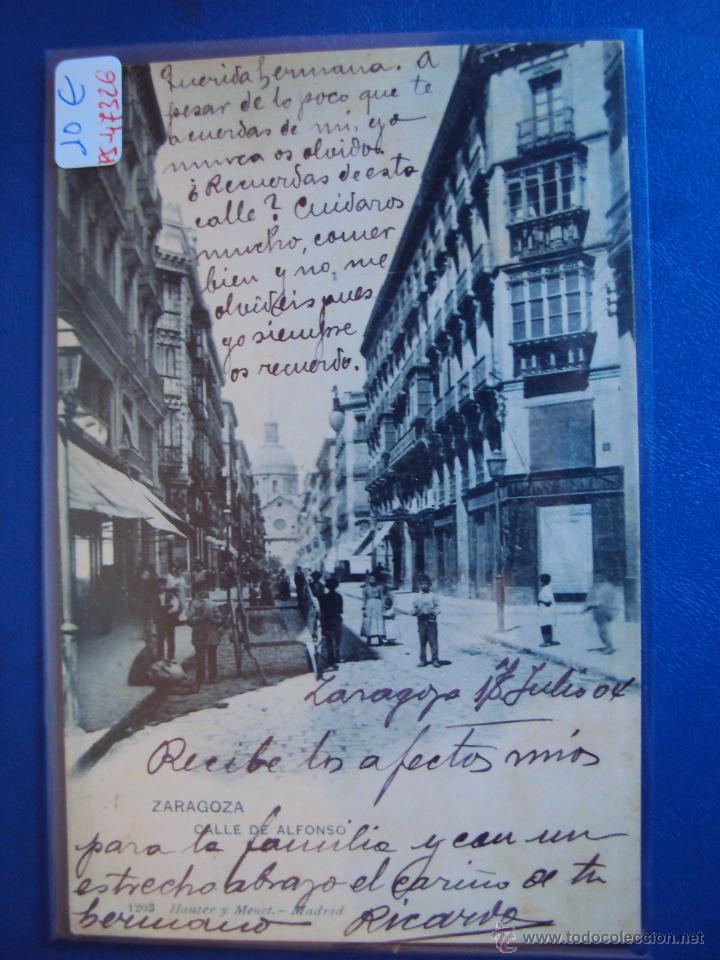 10 €
PS-47326
Querida hermana. A
pesar de lo poco que te
acuerdas de mi, yo
nunca os olvido.
¿Recuerdas de esta
calle? Cuidaros
mucho, comer
bien y no me
olvideis pues
yo siempre
os recuerdo.
Zaragoza Julio 04
Recibe los afectos mios
ZARAGOZA
CALLE DE ALFONSO
para la familia y con un
estrecho abrazo el cariño de tu
1203 Hauser y Menet.-Madrid
hermano Ricardo
www.todocoleccion.net